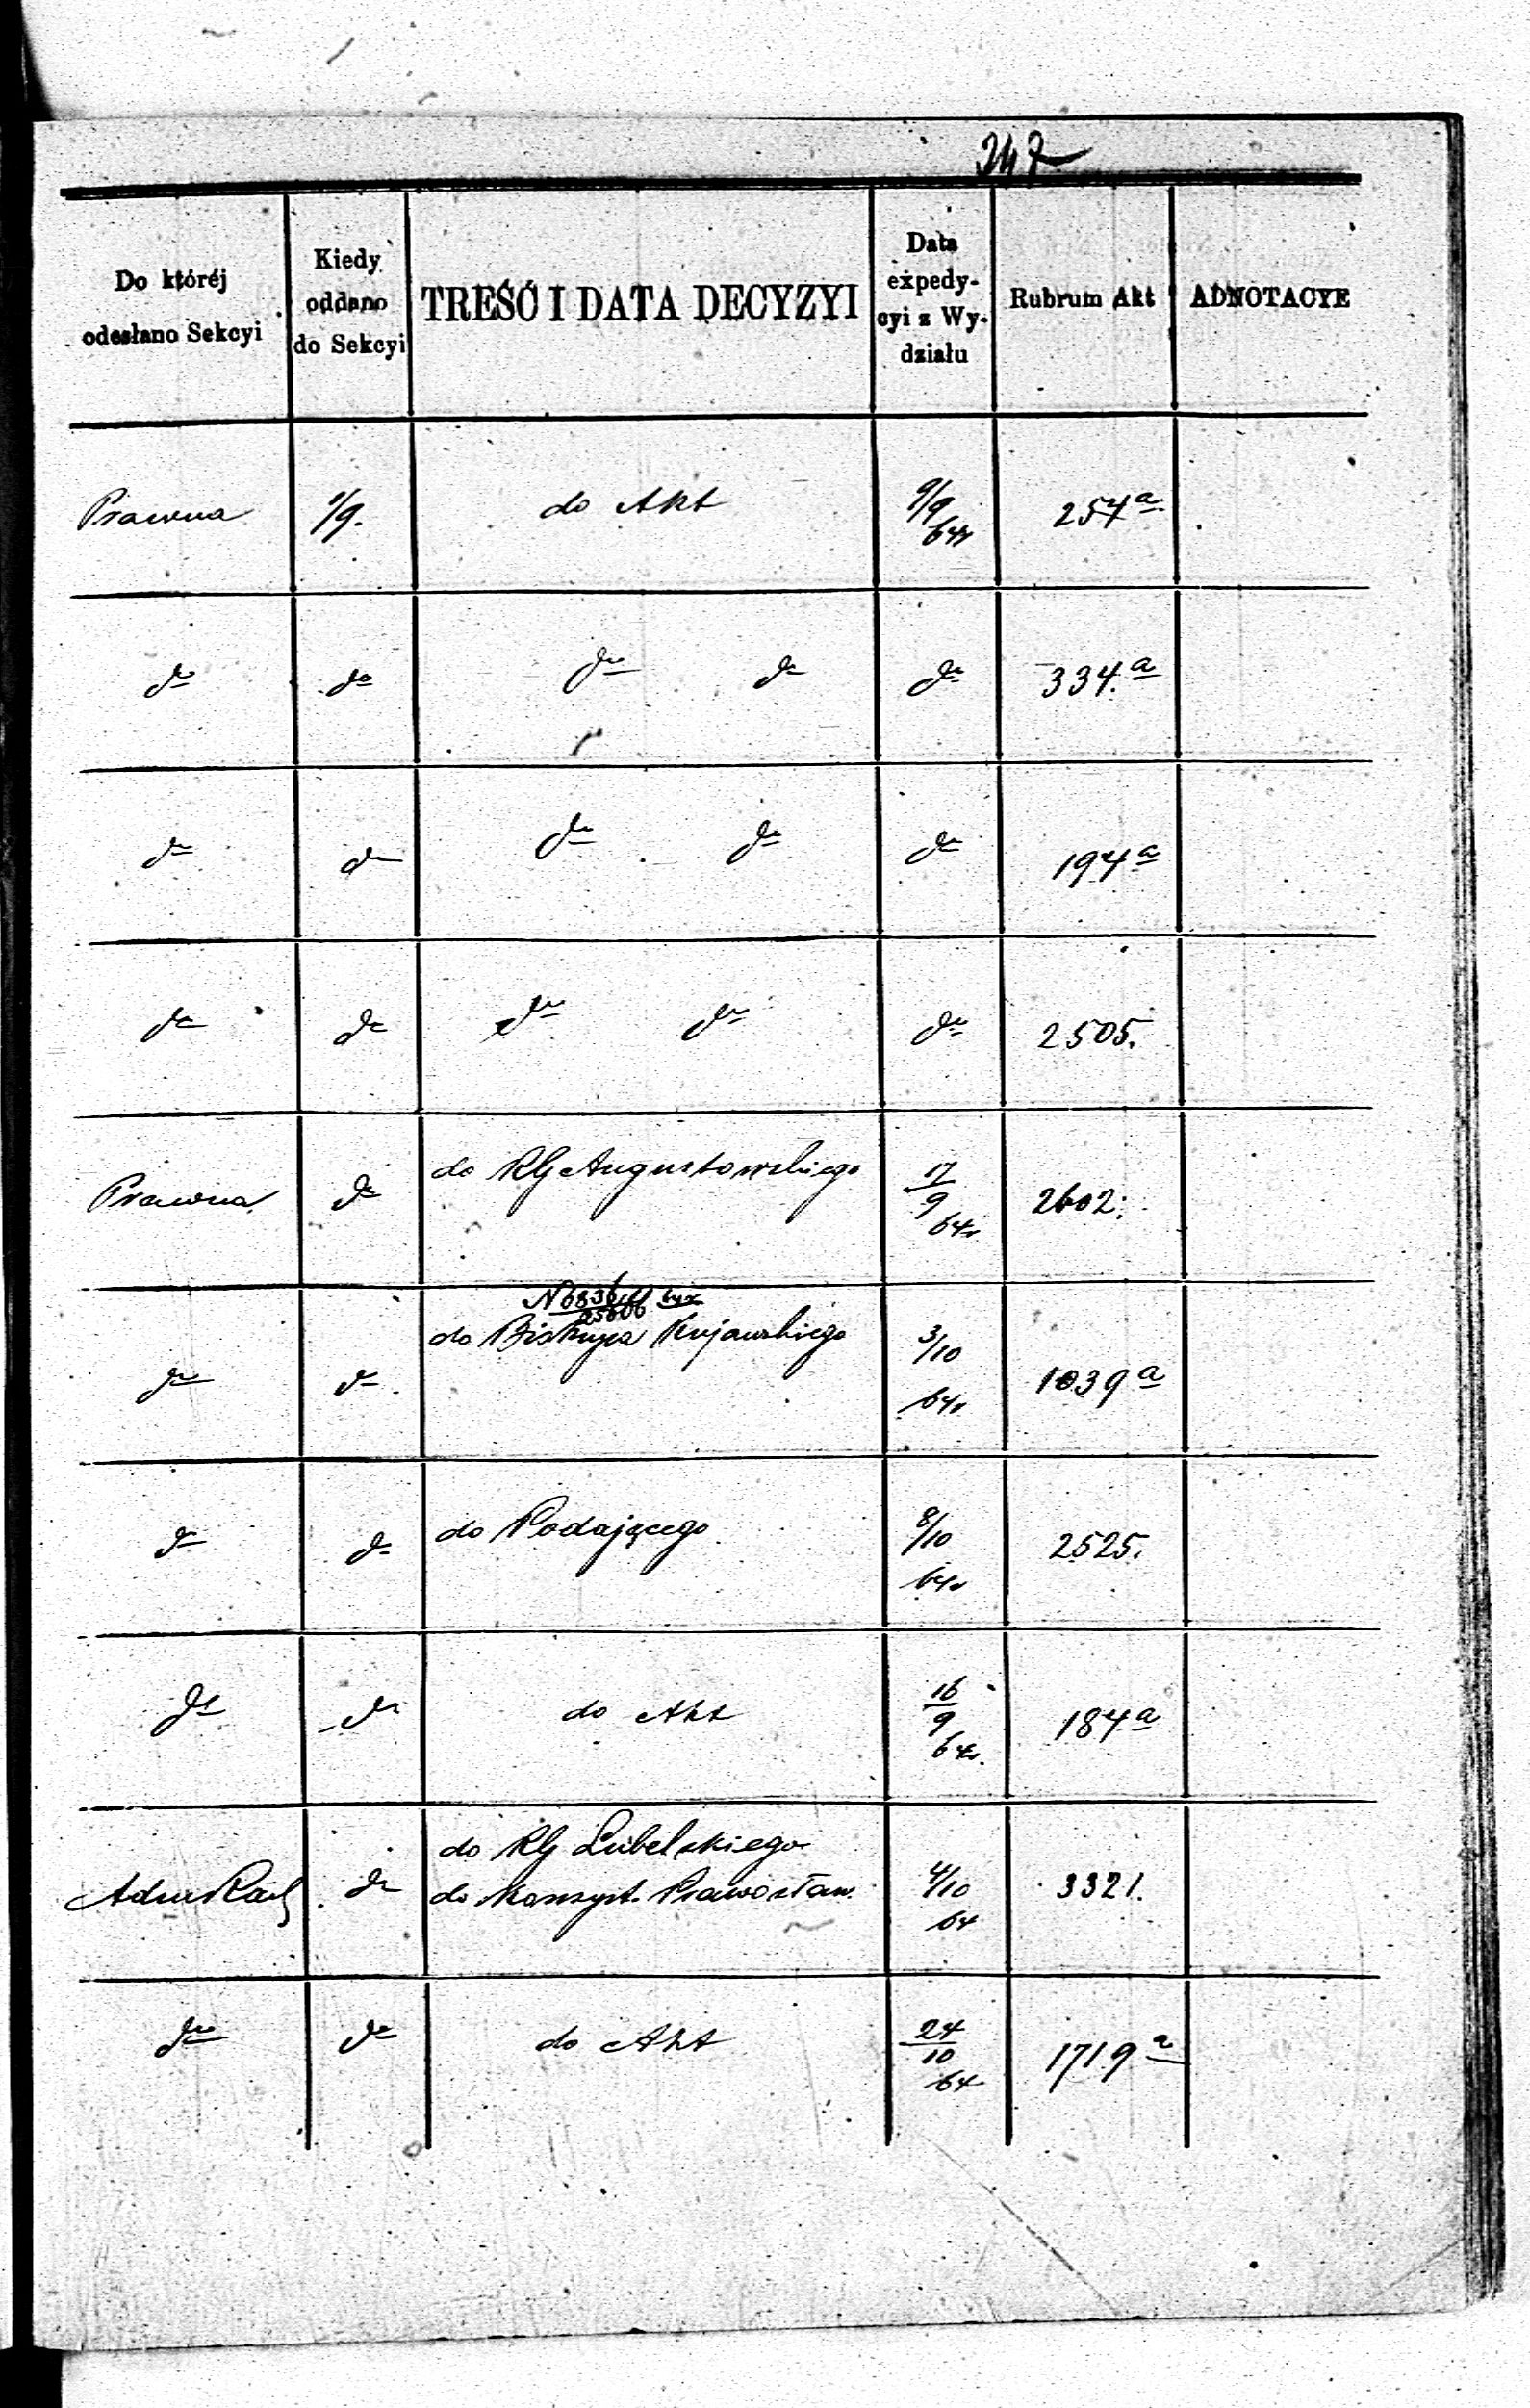 247
Do któréj odesłano Sekcyi
Kiedy oddano do Sekcyi
TREŚĆ I DATA DECYZYI
Data expedycyi z Wydziału
Rubrum Akt
ADNOTACYE
Prawna 1/9. do Akt 9/9 64r 257a
do do do do do 334.a
do do do do do 194a
do do do do do 2505.
Prawna do do RG Augustowskiego 17/9 64r 2602.
do do do Biskupa Kujawskiego 3/10 64r 1039a
do do do Podającego 8/10 64r 2525.
do do do Akt 16/9 64r. 184a
do RG Lubelskiego
do do Konsyst. Prawosław. 4/10 64 3321.
do do do Akt 24/10 64 1719a